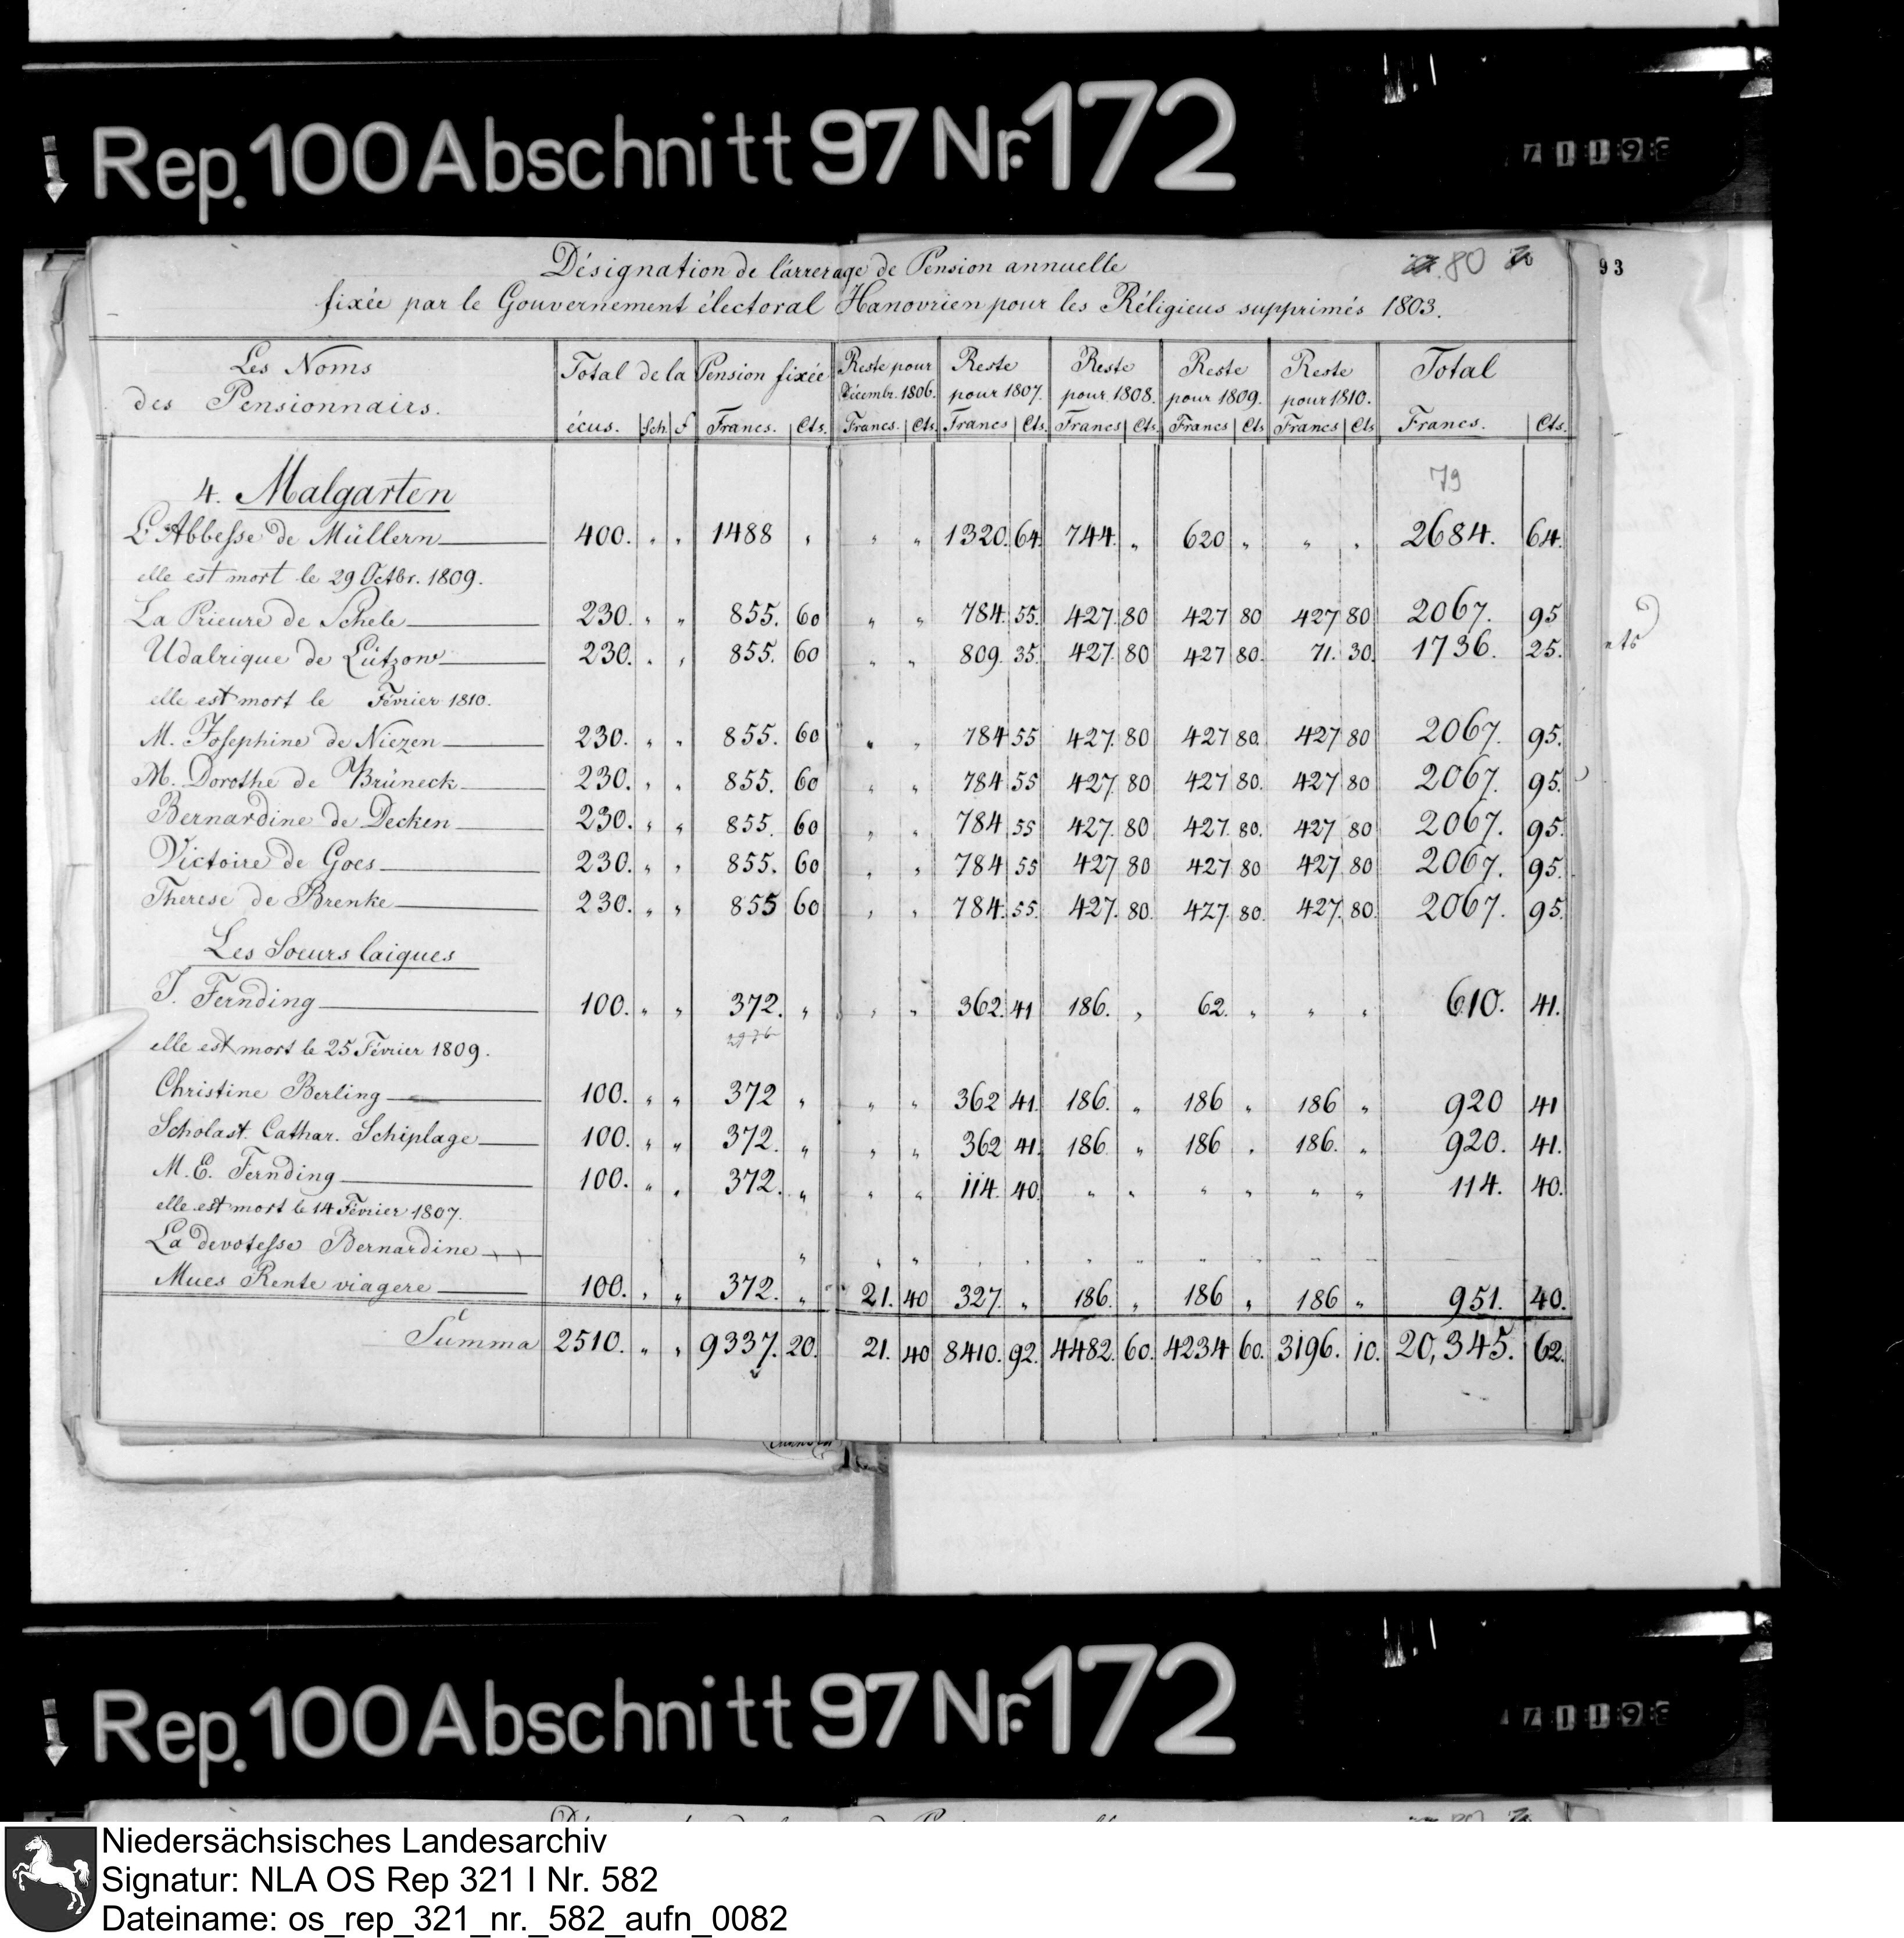 Rep. 100 Abschnitt 97 Nr. 172
Désignation de l'arrerage de Pension annuelle 80
93
fixée par le Gouvernement électoral Hanovrien pour les Réligieus supprimés 1803.
Les Noms des Pensionnairs. | Total de la Pension fixée | Reste pour Décembr. 1806. | Reste pour 1807. | Reste pour 1808. | Reste pour 1809. | Reste pour 1810. | Total
écus. | Sch. | ₰ | Francs. | Cts. | Francs. | Cts. | Francs | Cts. | Francs | Cts. | Francs | Cts | Francs | Cts | Francs. | Cts.
79
4. Malgarten
L'Abbesse de Müllern 400. " " 1488 " " " 1320. 64. 744. " 620 " " " 2684. 64.
elle est mort le 29 Octbr. 1809.
La Prieure de Schele 230. " " 855. 60 " " 784. 55. 427. 80 427 80 427 80 2067. 95
Udalrique de Lützow 230. " " 855. 60 " " 809. 35. 427. 80 427 80. 71. 30. 1736. 25.
elle est mort le Février 1810.
M. Josephine de Niezen 230. " " 855. 60 " " 784 55 427. 80 427 80. 427 80 2067. 95.
M. Dorothe de Brüneck 230. " " 855. 60 " " 784 55 427. 80 427 80. 427 80 2067. 95.
Bernardine de Decken 230. " " 855. 60 " " 784 55 427. 80 427. 80. 427 80 2067. 95.
Victoire de Goes 230. " " 855. 60 " " 784 55 427 80 427 80 427. 80 2067. 95.
Therese de Brenke 230. " " 855 60 " " 784. 55. 427. 80. 427. 80. 427. 80. 2067. 95.
Les Soeurs laiques
J. Fernding 100. " " 372. " " " 362. 41 186. " 62. " " " 610. 41.
2976
elle est mort le 25 Février 1809.
Christine Berling 100. " " 372 " " " 362 41. 186. " 186 " 186 " 920 41
Scholast. Cathar. Schiplage 100. " " 372. " " " 362 41. 186 " 186 " 186. " 920. 41.
M. E. Fernding 100. " " 372. " " " 114. 40. " " " " " " 114. 40.
elle est mort le 14 Février 1807.
La devotesse Bernardine
Mues Rente viagere 100. " " 372. " 21. 40 327. " 186. " 186 " 186 " 951. 40.
Summa 2510. " " 9337. 20. 21. 40 8410. 92. 4482. 60. 4234 60. 3196. 10. 20,345. 62.
Rep. 100 Abschnitt 97 Nr. 172
Niedersächsisches Landesarchiv
Signatur: NLA OS Rep 321 I Nr. 582
Dateiname: os_rep_321_nr._582_aufn_0082